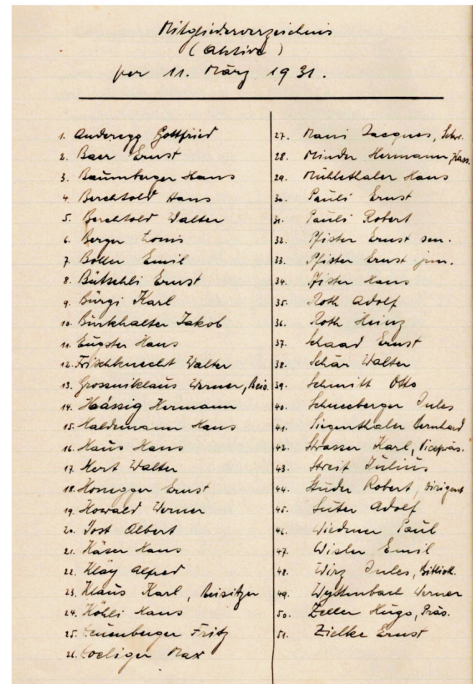 Mitgliederverzeichnis
(Aktive)
per 11. März 1931.
1. Anderegg Gottfried
2. Baer Ernst
3. Baumberger Hans
4. Berchtold Hans
5. Berchtold Walter
6. Berger Louis
7. Boller Emil
8. Bütschli Ernst
9. Bürgi Karl
10. Burkhalter Jakob
11. Eugster Hans
12. Frischknecht Walter
13. Grossniklaus Werner, Beis.
14. Hässig Hermann
15. Haldemann Hans
16. Haus Hans
17. Hert Walter
18. Honegger Ernst
19. Howald Werner
20. Jost Albert
21. Käser Hans
22. Kläy Alfred
23. Klaus Karl, Beisitzer
24. Köhli Hans
25. Leuenberger Fritz
26. Loeliger Max
27. Mani Jacques, Sekr.
28. Minder Hermann, Kass.
29. Mühlethaler Hans
30. Pauli Ernst
31. Pauli Robert
32. Pfister Ernst sen.
33. Pfister Ernst jun.
34. Pfister Hans
35. Roth Adolf
36. Roth Heinz
37. Schaad Ernst
38. Schär Walter
39. Schmitt Otto
40. Schneeberger Jules
41. Siegenthaler Bernhard
42. Strasser Karl, Vicepräs.
43. Streit Julius
44. Studer Robert, Dirigent
45. Suter Adolf
46. Wiedmer Paul
47. Wisler Emil
48. Wirz Jules, Biblioth.
49. Wyttenbach Werner
50. Zeller Hugo, Präs.
51. Zielke Ernst